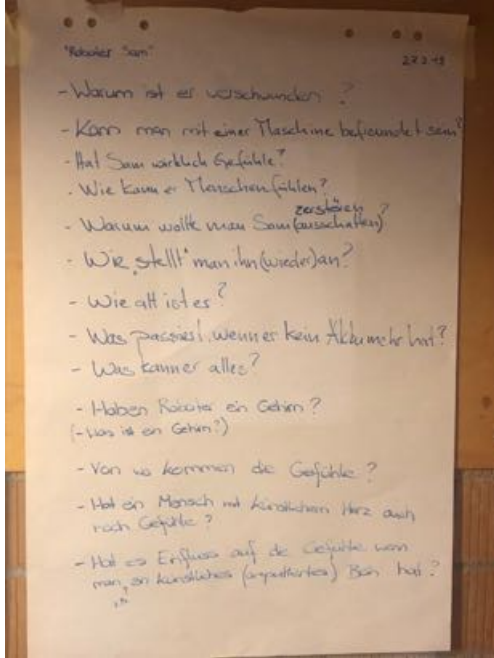 "Roboter Sam"
27.2.19
- Warum ist er verschwunden?
- Kann man mit einer Maschine befreundet sein?
- Hat Sam wirklich Gefühle?
- Wie kann er Menschen fühlen?
zerstören
- Warum wollte man Sam (ausschalten)?
- Wie "stellt" man ihn (wieder) an?
- Wie alt ist er?
- Was passiert, wenn er kein Akku mehr hat?
- Was kann er alles?
- Haben Roboter ein Gehirn?
(- Was ist ein Gehirn?)
- Von wo kommen die Gefühle?
- Hat ein Mensch mit künstlichem Herz auch
noch Gefühle?
- Hat es Einfluss auf die Gefühle wenn
man ein künstliches (amputiertes) Bein hat?